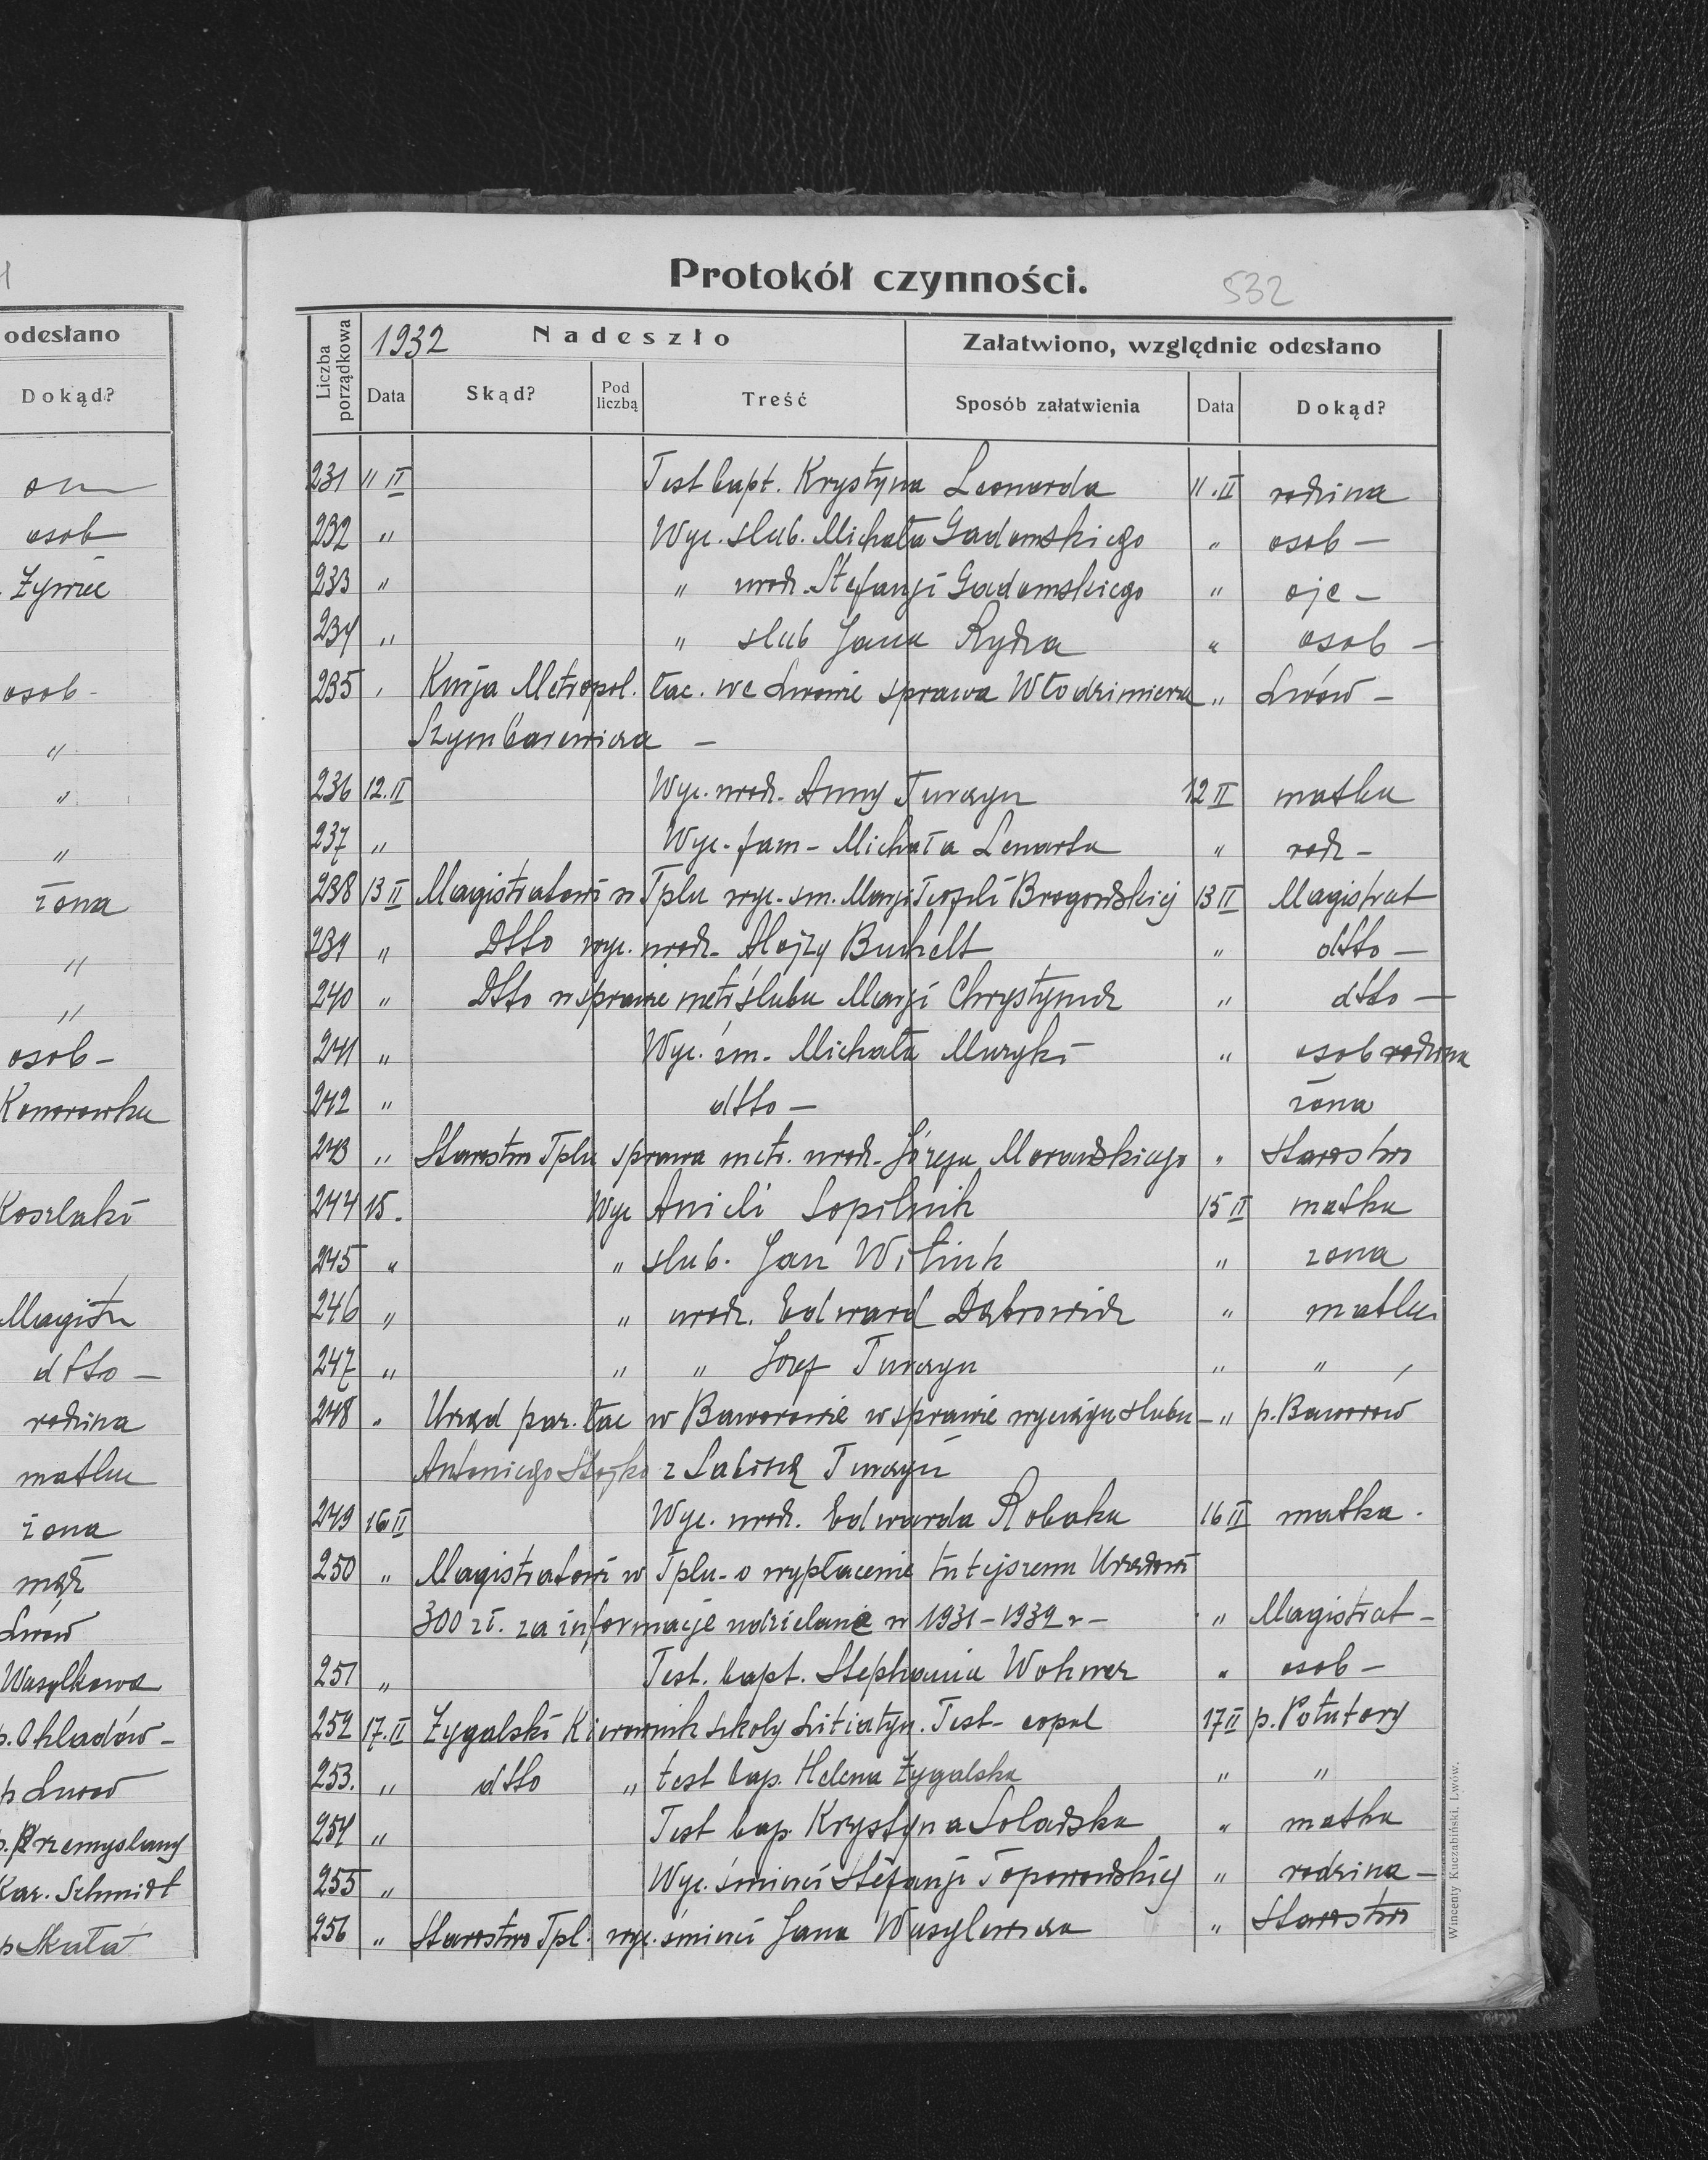 odesłano
Dokąd?
osob
Żywiec
osob -
"
"
"
żona
"
"
osob -
Konorowka
Koszlaki
Magistr
dtto -
rodzina
matka
żona
mąż
Lwów
Wasylkowa
p. Okladów -
p Lwów
p. Przemyslany
Kar. Schmidt
p Skałat
Protokół czynności.
532
Liczba porządkowa
1932 Nadeszło
Załatwiono, względnie odesłano
Data Skąd? Pod liczbą Treść Sposób załatwienia Data Dokąd?
231 11 II Test bapt. Krystyna Leonarda 11.II rodzina
232 " Wyc. slub. Michała Gadomskiego " osob -
233 " " urodz. Stefanji Gadomskiego " ojc -
234 " " slub Jana Rydza " osob -
235 " Kurja Metropol. łac. we Lwowie sprawa Włodzimierza " Lwów -
Szymbarewicza -
236 12.II Wyc. urodz. Anny Turczyn 12 II matka
237 " Wyc. fam - Michała Lenarta " rodz -
238 13 II Magistratowi w Tplu wyc. sm. Marji Teofili Brogowskiej 13 II Magistrat
239 " Dtto wyc. urodz. Alojzy Buchelt " dtto -
240 " Dtto w sprawie metr ślubu Marji Chrystynicz " dtto -
241 " Wyc. śm. Michała Muzyki " osob rodzina
242 " dtto - żona
243 " Starostwo Tplu sprawa metr. urodz. Józefa Morawskiego " Starostwo
244 15. Wyc Anieli Sopilnik 15 II matka
245 " " slub. Jan Witink " zona
246 " " urodz. Edward Dąbrowicz " matka
247 " " " Jozef Turczyn " "
248 " Urząd par. łac w Baworowie w sprawie wyciągu slubu - " p. Baworow
Antoniego Stojko z Sabiną Turczyn
249 16 II Wyc. urodz. Edwarda Robaka 16 II matka.
250 " Magistratowi w Tplu - o wypłacenie tutejszemu Urzędowi
300 zł. za informacje udzielane w 1931-1932 r - " Magistrat -
251 " Test. bapt. Stephania Wohner " osob -
252 17.II Zygalski Kierownik szkoly Litiatyn. Test - copul 17 II p. Potutory
253. " dtto " test bap. Helena Zygalska " "
254 " Test bap. Krystyna Soladska " matka
255 " Wyc. śmierci Stefanji Toporowskiej " rodzina -
256 " Starostwo Tpl. wyc. śmierci Jana Wasylewicza " Starostwo
Wincenty Kuczabiński, Lwów.